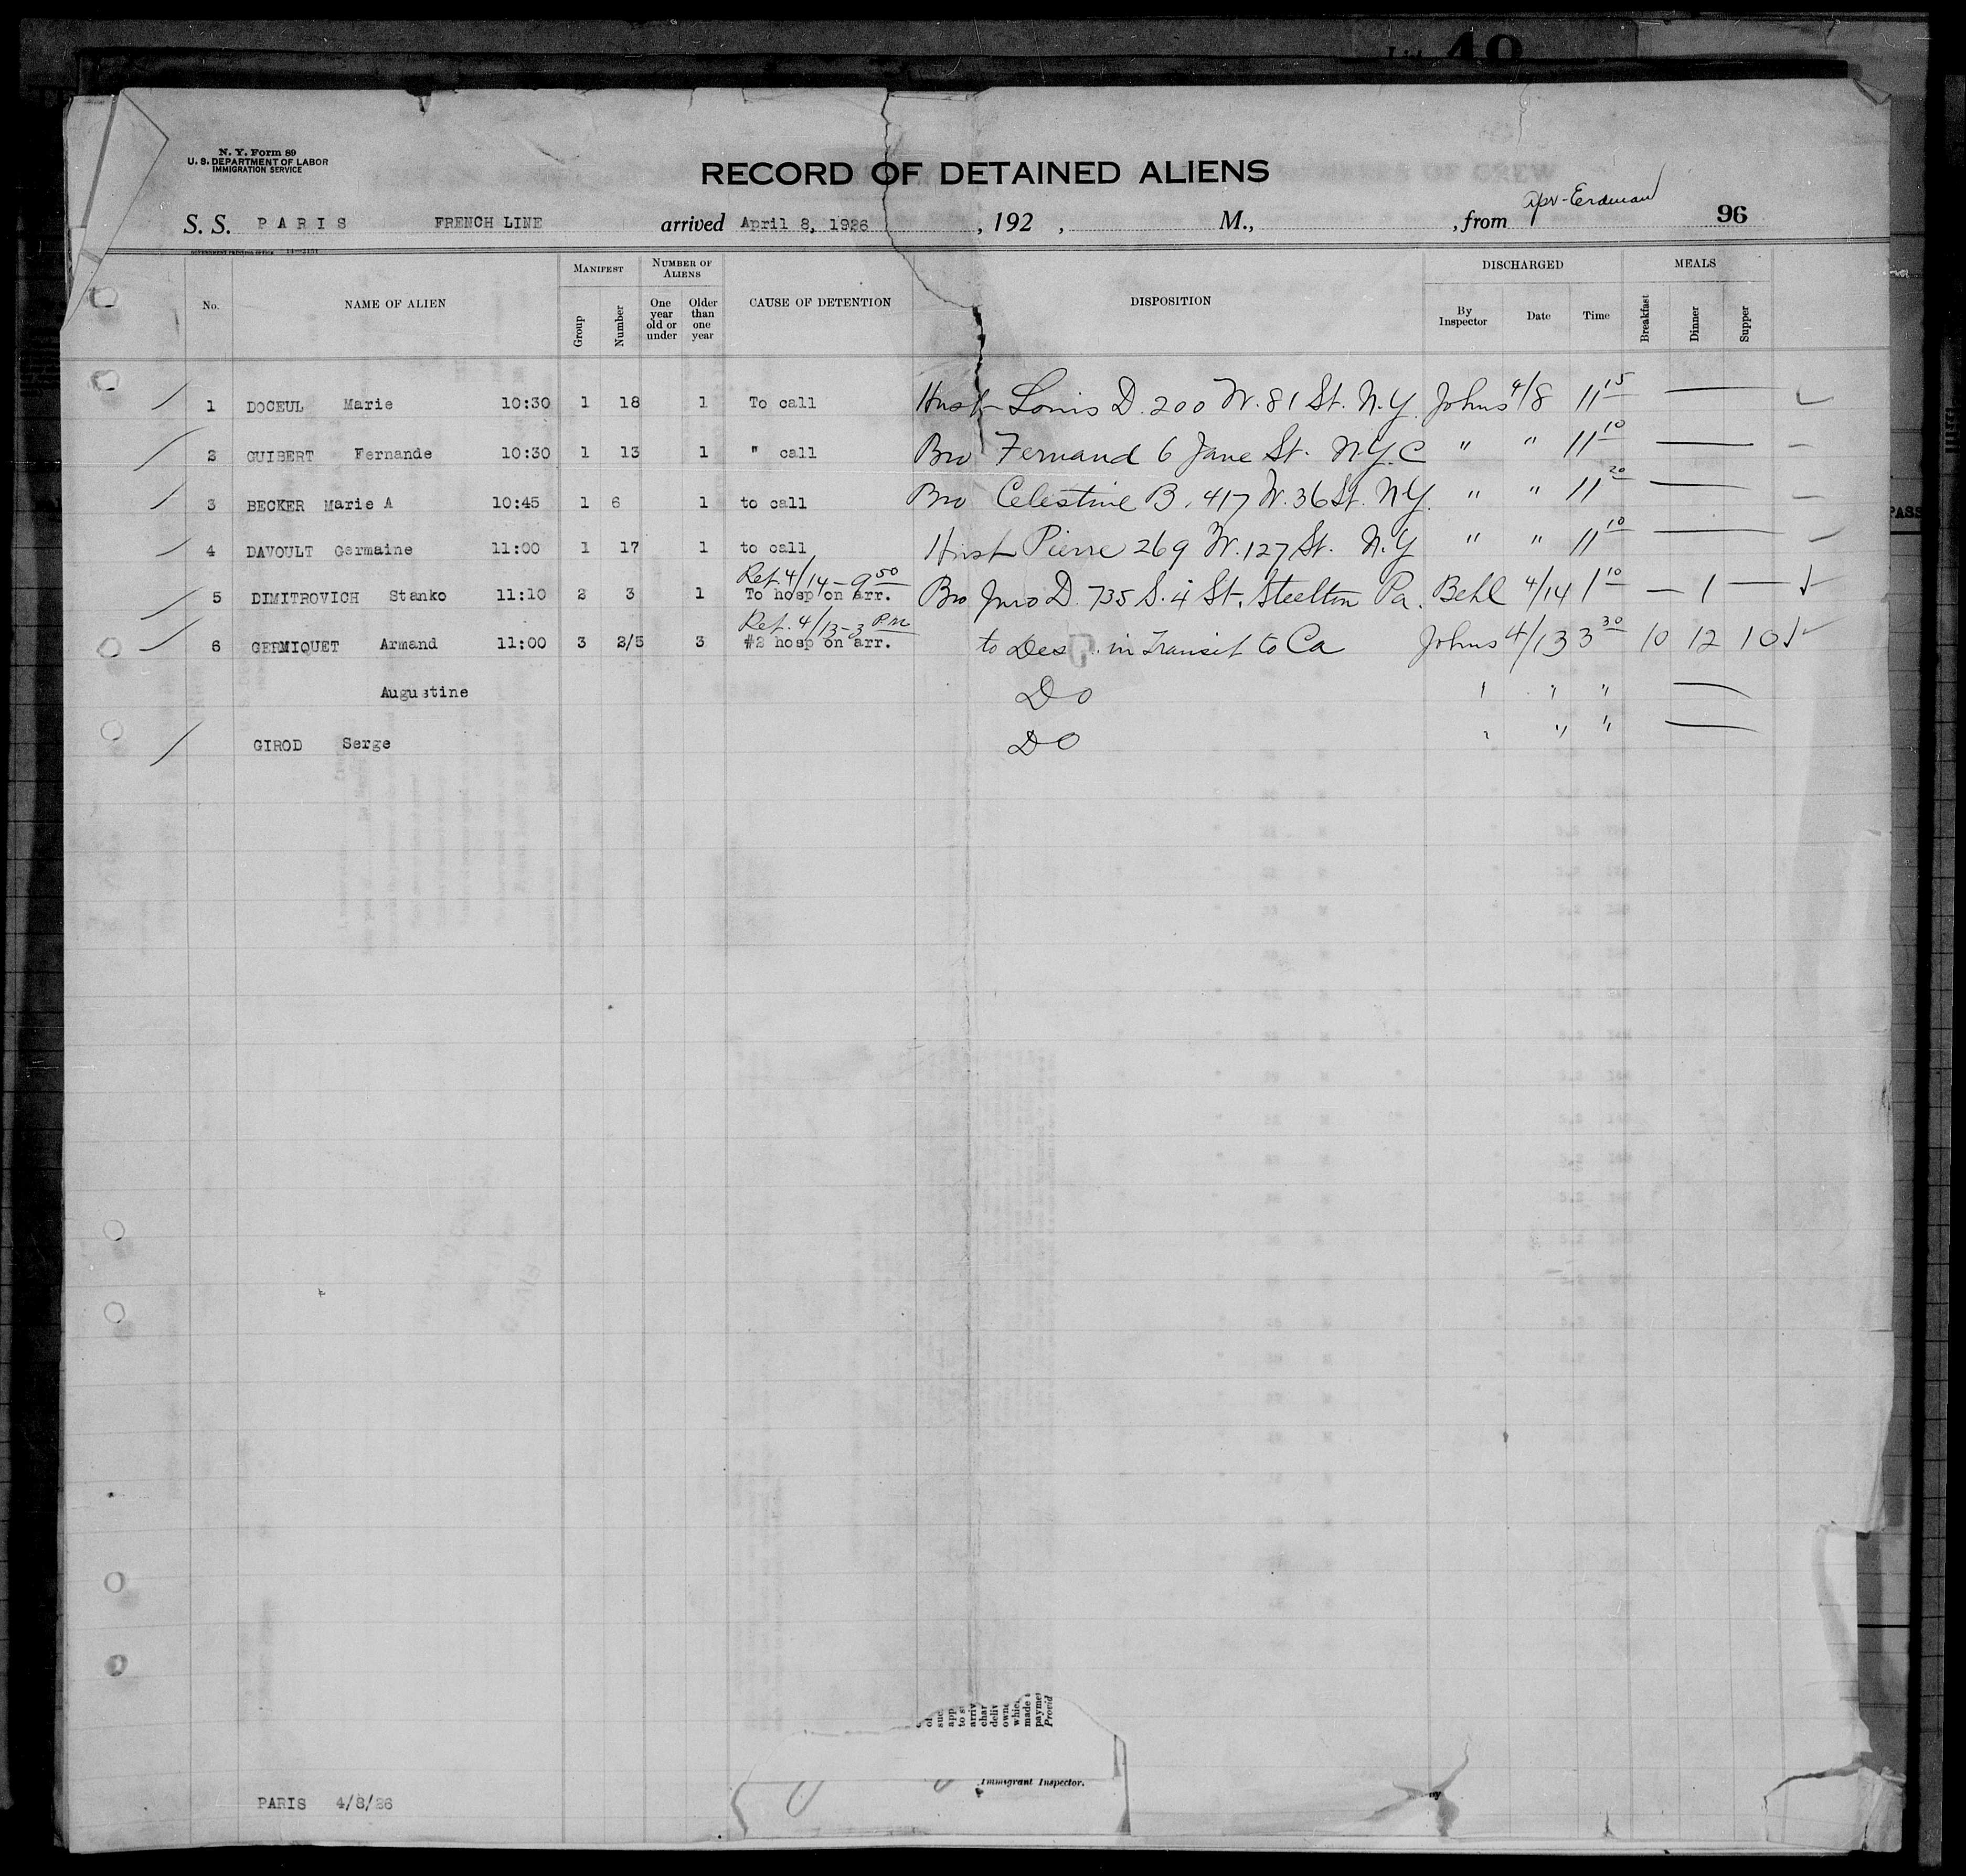 List 40
N. Y. Form 89
U. S. DEPARTMENT OF LABOR
IMMIGRATION SERVICE
RECORD OF DETAINED ALIENS
S. S. PARIS FRENCH LINE arrived April 8, 1926 , 192 , M., , from 96
GOVERNMENT PRINTING OFFICE
No. NAME OF ALIEN MANIFEST Group Number NUMBER OF ALIENS One year old or under Older than one year CAUSE OF DETENTION DISPOSITION DISCHARGED By Inspector Date Time MEALS Breakfast Dinner Supper
1 DOCEUL Marie 10:30 1 18 1 To call Husb Louis D. 200 W. 81 St. N.Y. Johns 4/8 11 15 —
2 GUIBERT Fernande 10:30 1 13 1 " call Bro Fernand 6 Jane St. N.Y.C " " 11 10 —
3 BECKER Marie A 10:45 1 6 1 to call Bro Celestine B. 417 W. 36 St. N.Y. " " 11 20 —
4 DAVOULT Germaine 11:00 1 17 1 to call Husb Pierre 269 W. 127 St. N.Y " " 11 10 —
Ret. 4/14 - 9 50
5 DIMITROVICH Stanko 11:10 2 3 1 To hosp on arr. Bro Juro D. 735 S. 4 St. Steelton Pa. Behl 4/14 1 10 — 1 —
Ret. 4/13 - 3 PM
6 GERMIQUET Armand 11:00 3 2/5 3 #2 hosp on arr. to Des. in Transit to Ca Johns 4/13 3 30 10 12 10
Augustine Do " " " —
GIROD Serge Do " " " —
PASS
of
suc
app
to s
arriv
char
deliv
owne
which
made
paymen
Provid
Immigrant Inspector.
PARIS 4/8/26